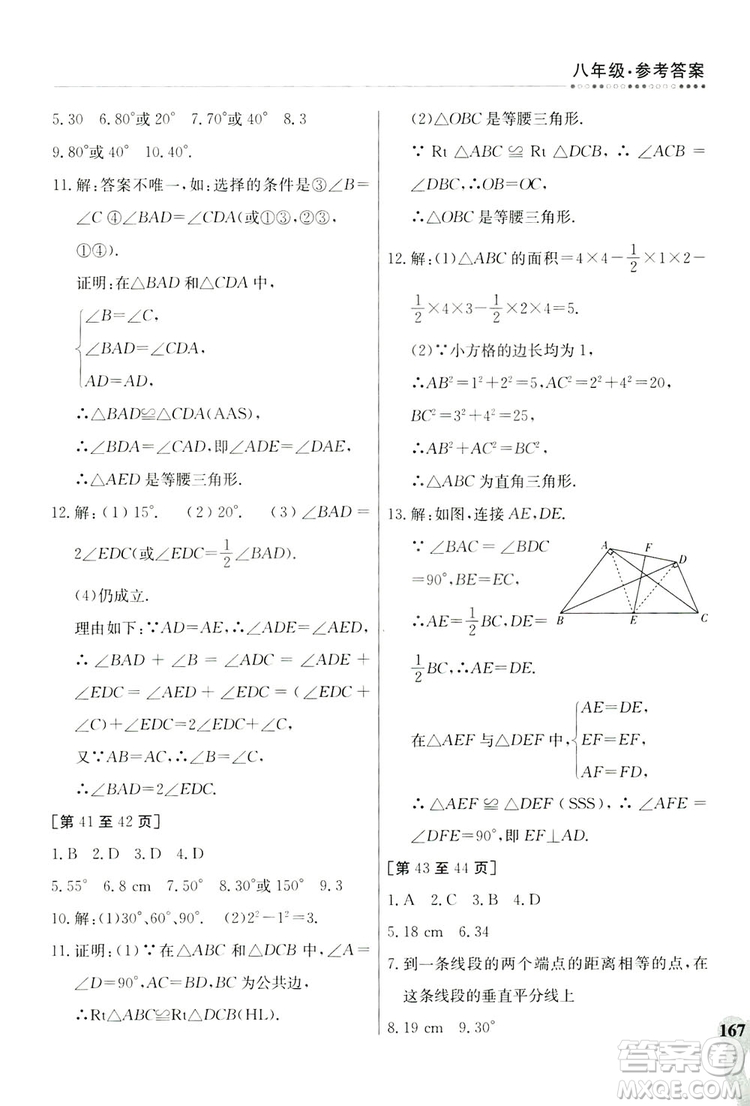 八年级·参考答案
5.30 6.80°或 20° 7.70°或 40° 8.3
9.80°或 40° 10.40°.
11.解:答案不唯一,如:选择的条件是③∠B=
∠C ④∠BAD=∠CDA(或①③,②③,
①④).
证明:在△BAD 和△CDA 中,
∠B=∠C,
∠BAD=∠CDA,
AD=AD,
∴△BAD≌△CDA(AAS),
∴∠BDA=∠CAD,即∠ADE=∠DAE,
∴△AED 是等腰三角形.
12.解:(1)15°. (2)20°. (3)∠BAD=
2∠EDC(或∠EDC=1/2∠BAD)
(4)仍成立.
理由如下:∵AD=AE,∴∠ADE=∠AED,
∴∠BAD+∠B=∠ADC=∠ADE+
∠EDC=∠AED+∠EDC=(∠EDC+
∠C)+∠EDC=2∠EDC+∠C,
又∵AB=AC,∴∠B=∠C,
∴∠BAD=2∠EDC.
[第 41 至 42 页]
1.B 2.D 3.D 4.D
5.55° 6.8 cm 7.50° 8.30°或 150° 9.3
10.解:(1)30°、60°、90°. (2)2²-1²=3.
11.证明:(1)∵在△ABC 和△DCB 中,∠A=
∠D=90°,AC=BD,BC 为公共边,
∴Rt△ABC≌Rt△DCB(HL).
(2)△OBC 是等腰三角形.
∵ Rt △ABC ≌ Rt △DCB,∴ ∠ACB=
∠DBC,∴OB=OC,
∴△OBC 是等腰三角形.
12.解:(1)△ABC 的面积=4×4-1/2×1×2-
1/2×4×3-1/2×2×4=5.
(2)∵小方格的边长均为 1,
∴AB²=1²+2²=5,AC²=2²+4²=20,
BC²=3²+4²=25,
∴AB²+AC²=BC²,
∴△ABC 为直角三角形.
13.解:如图,连接 AE,DE.
∵ ∠BAC = ∠BDC
=90°,BE=EC,
∴AE=1/2BC,DE=
1/2BC,∴AE=DE.
A
F
D
B
E
C
在△AEF 与△DEF 中,
AE=DE,
EF=EF,
AF=FD,
∴ △AEF ≌ △DEF (SSS),∴ ∠AFE =
∠DFE=90°,即 EF⊥AD.
[第 43 至 44 页]
1.A 2.C 3.B 4.D
5.18 cm 6.34
7.到一条线段的两个端点的距离相等的点,在
这条线段的垂直平分线上
8.19 cm 9.30°
167
答案圈
MXQE.COM